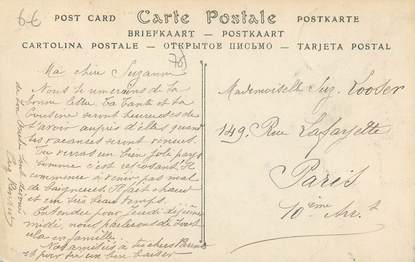 6-6
POST CARD Carte Postale POSTKARTE
BRIEFKAART — POSTKAART
CARTOLINA POSTALE — ОТКРЫТОЕ ПИСЬМО — TARJETA POSTAL
Ma chère Suzanne
Nous te remercions de ta
bonne lettre. Ta tante et ta
Cousine seront heureuses de
t'avoir auprès d'elles quand
tes vacances seront venues.
Tu verras un bien joli pays
comme c'est
commence à venir pas mal
de baigneurs. Il fait chaud
et un très beau temps.
Entendu pour Jeudi
midi, nous parlerons de tout
cela en famille.
Nos amitiés à tes chers Parents
et pour toi un bon baiser
de
Mademoiselle Suz. Looser
149, Rue Lafayette
Paris
10ème Arr.t